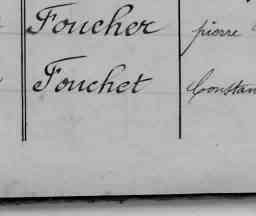 Foucher pierre
Fouchet Constan